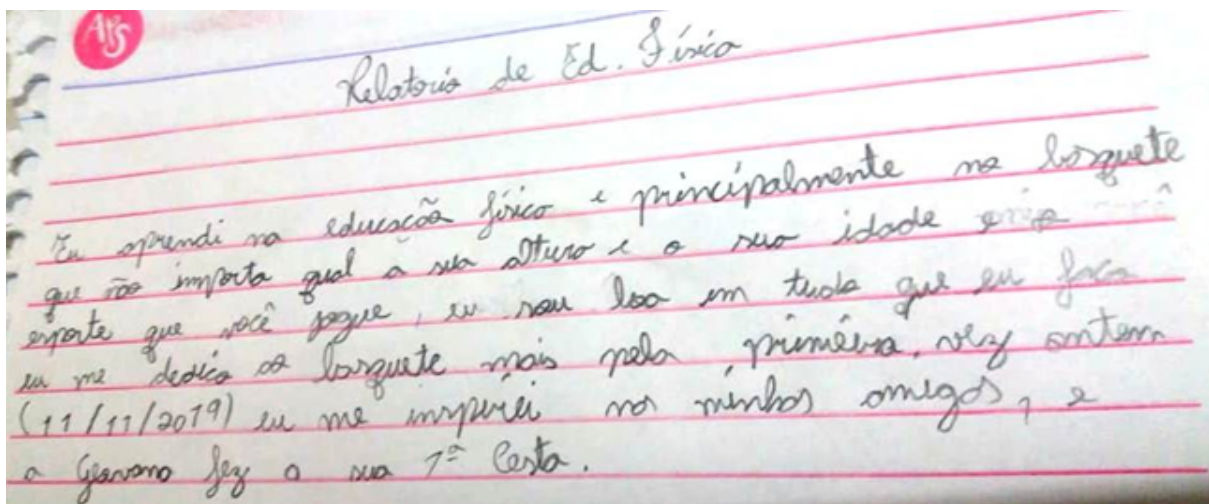 APS
Relatorio de Ed. Física
Eu aprendi na educação física e principalmente no basquete
que não importa qual a sua altura e a sua idade e o
esporte que você jogue, eu sou boa em tudo que eu faço
eu me dedico ao basquete mais pela primeira, vez ontem
(11/11/2019) eu me inspirei nos minhos amigos, e
a Geovana fez a sua 1ª Cesta.